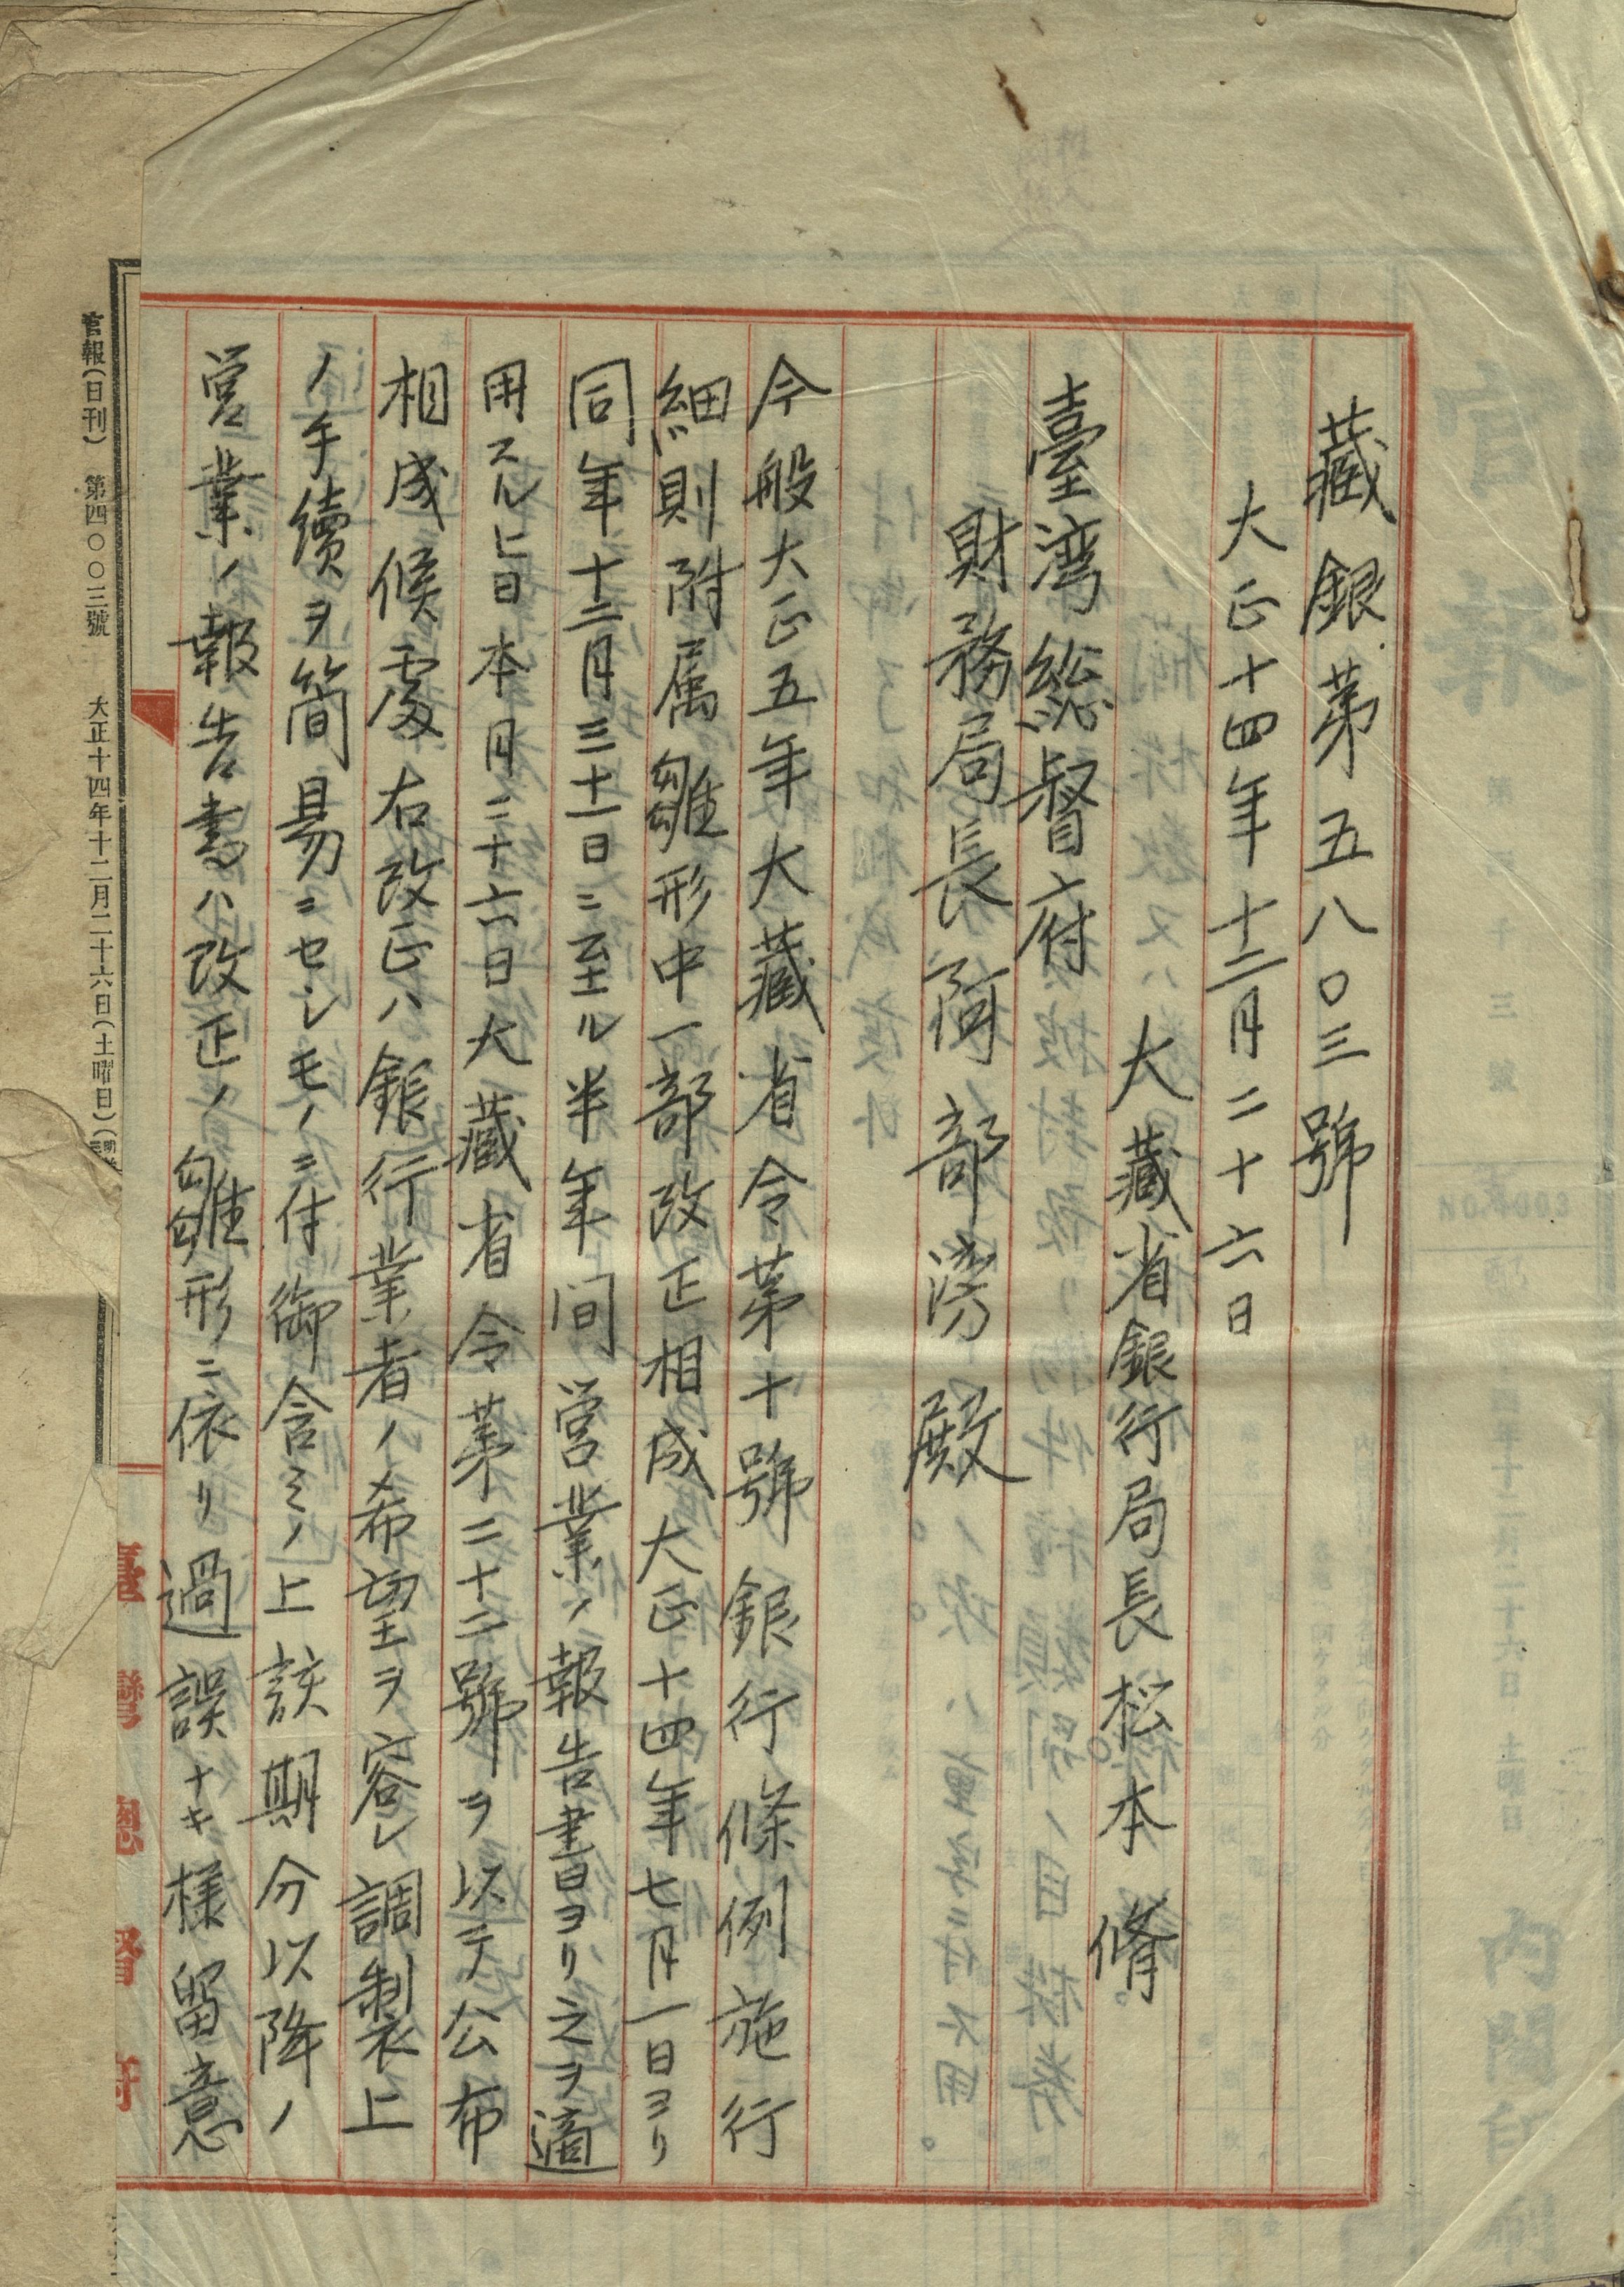 藏銀第五八〇三號
大正十四年十二月二十六日
大藏省銀行局長松本脩
臺湾総督府
財務局長阿部滂殿
今般大正五年大藏省令第十號銀行條例施行
細則附属雛形中一部改正相成大正十四年七月一日ヨリ
同年十二月三十一日ニ至ル半年間営業ノ報告書ヨリ之ヲ適
用スル旨本月二十六日大藏省令第二十二號ヲ以テ公布
相成候處右改正ハ銀行業者ノ希望ヲ容レ調製上
ノ手續ヲ簡易ニセシモノニ付御含ミノ上該期分以降ノ
営業ノ報告書ハ改正ノ雛形ニ依リ過誤ナキ様留意
臺灣總督府
官報(日刊) 第四〇〇三號 大正十四年十二月二十六日(土曜日)